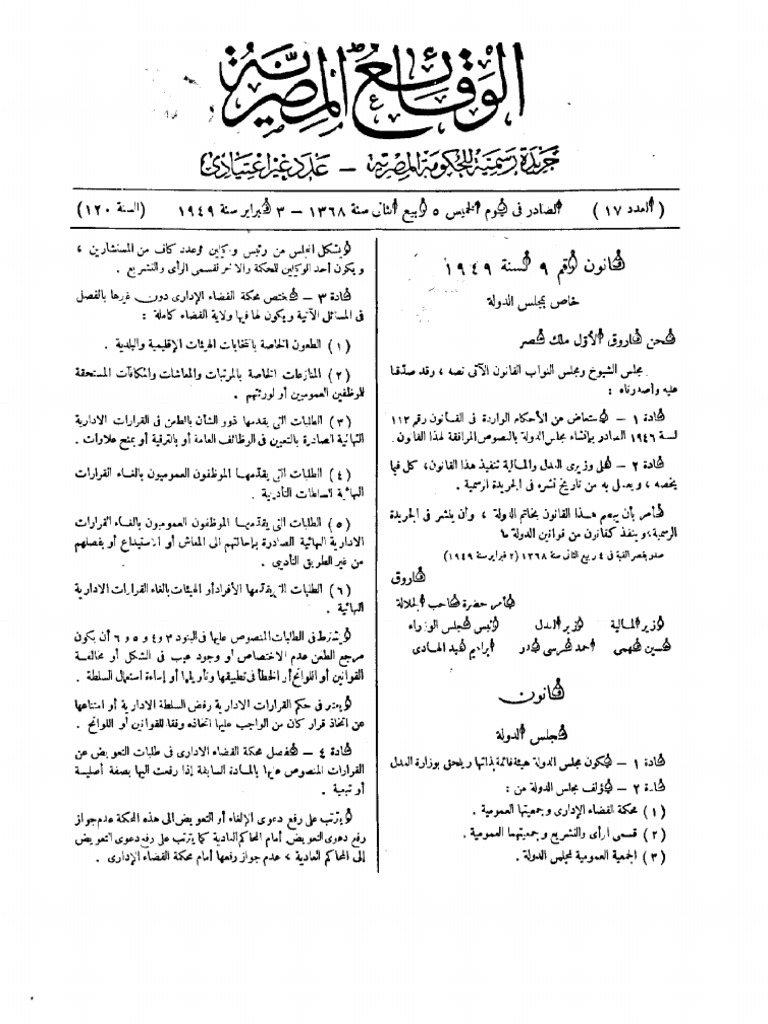 الوقائع المصرية
جريدة رسمية للحكومة المصرية – عدد غير اعتيادى
(العدد ١٧) الصادر فى يوم الخميس ٥ ربيع الثانى سنة ١٣٦٨ – ٣ فبراير سنة ١٩٤٩ (السنة ١٢٠)
قانون رقم ٩ لسنة ١٩٤٩
خاص بمجلس الدولة
نحن فاروق الأول ملك مصر
مجلس الشيوخ ومجلس النواب القانون الآتى نصه ، وقد صدّقنا
عليه وأصدرناه :
مادة ١ – يستعاض عن الأحكام الواردة فى القانون رقم ١١٢
لسنة ١٩٤٦ الصادر بإنشاء مجلس الدولة بالنصوص المرافقة لهذا القانون .
مادة ٢ – على وزيرى العدل والمالية تنفيذ هذا القانون، كل فيما
يخصه ، ويعمل به من تاريخ نشره فى الجريدة الرسمية .
نأمر بأن يبصم هذا القانون بخاتم الدولة ، وأن ينشر فى الجريدة
الرسمية، وينفذ كقانون من قوانين الدولة ما
صدر بقصر القبة فى ٤ ربيع الثانى سنة ١٣٦٨ (٢ فبراير سنة ١٩٤٩)
فاروق
بأمر حضرة صاحب الجلالة
وزير المالية وزير العدل رئيس مجلس الوزراء
حسين فهمى أحمد مرسى بدر ابراهيم عبد الهادى
قانون
مجلس الدولة
مادة ١ – يكون مجلس الدولة هيئة قائمة بذاتها ويلحق بوزارة العدل
مادة ٢ – يؤلف مجلس الدولة من :
(١) محكمة القضاء الإدارى وجمعيتها العمومية .
(٢) قسمى الرأى والتشريع وجمعيتهما العمومية .
(٣) الجمعية العمومية لمجلس الدولة .
ويشكل المجلس من رئيس وكيلين وعدد كاف من المستشارين ،
ويكون أحد الوكيلين للمحكمة والآخر لقسمى الرأى والتشريع .
مادة ٣ – تختص محكمة القضاء الإدارى دون غيرها بالفصل
فى المسائل الآتية ويكون لها فيها ولاية القضاء كاملة :
(١) الطعون الخاصة بانتخابات الهيئات الإقليمية والبلدية .
(٢) المنازعات الخاصة بالمرتبات والمعاشات والمكافآت المستحقة
للموظفين العموميين أو لورثتهم .
(٣) الطلبات التى يقدمها ذوو الشأن بالطعن فى القرارات الادارية
النهائية الصادرة بالتعيين فى الوظائف العامة أو بالترقية أو بمنح علاوات .
(٤) الطلبات التى يقدّمها الموظفون العموميون بالغاء القرارات
النهائية للسلطات التأديبية .
(٥) الطلبات التى يقدّمها الموظفون العموميون بالغاء القرارات
الادارية النهائية الصادرة بإحالتهم الى المعاش أو الاستيداع أو بفصلهم
من غير الطريق التأديبى .
(٦) الطلبات التى يقدّمها الأفراد أو الهيئات بالغاء القرارات الادارية
النهائية .
ويشترط فى الطلبات المنصوص عليها فى البنود ٣ و ٤ و ٥ و ٦ أن يكون
مرجع الطعن عدم الاختصاص أو وجود عيب فى الشكل أو مخالفة
القوانين أو اللوائح أو الخطأ فى تطبيقها وتأويلها أو إساءة استعمال السلطة .
ويعتبر فى حكم القرارات الادارية رفض السلطة الادارية أو امتناعها
عن اتخاذ قرار كان من الواجب عليها اتخاذه وفقا للقوانين أو اللوائح .
مادة ٤ – تفصل محكمة القضاء الادارى فى طلبات التعويض عن
القرارات المنصوص عليها بالمادة السابقة إذا رفعت اليها بصفة أصلية
أو تبعية .
ويترتب على رفع دعوى الإلغاء أو التعويض الى هذه المحكمة عدم جواز
رفع دعوى التعويض أمام المحاكم العادية كما يترتب على رفع دعوى التعويض
إلى المحاكم العادية ، عدم جواز رفعها أمام محكمة القضاء الإدارى .